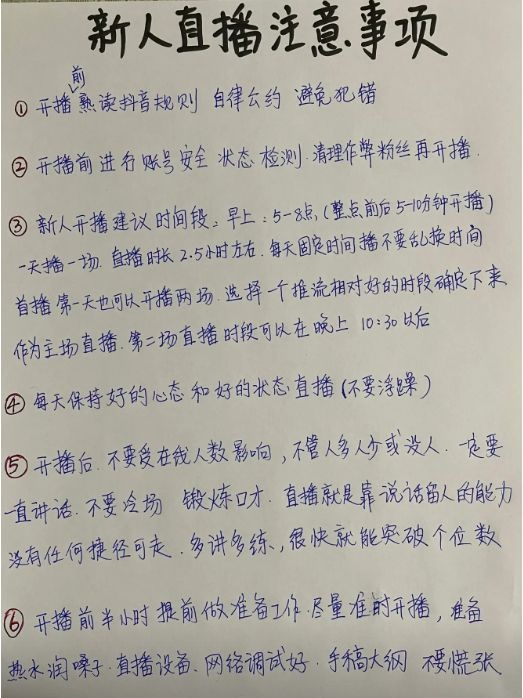 新人直播注意事项
① 开播前熟读抖音规则 自律公约 避免犯错
② 开播前进行账号安全 状态检测.清理作弊粉丝再开播.
③ 新人开播建议时间段:早上:5-8点,(整点前后5-10分钟开播)
一天播一场.直播时长2.5小时左右.每天固定时间播不要乱换时间
首播第一天也可以开播两场.选择一个推流相对好的时段确定下来
作为主场直播.第二场直播时段可以在晚上10:30以后
④ 每天保持好的心态和好的状态直播(不要浮躁)
⑤ 开播后.不要受在线人数影响,不管人多人少或没人.一定要
一直讲话.不要冷场 锻炼口才.直播就是靠说话留人的能力
没有任何捷径可走.多讲多练、很快就能突破个位数
⑥ 开播前半小时提前做准备工作.尽量准时开播,准备
热水润嗓子.直播设备、网络调试好.手稿大纲 不要慌张